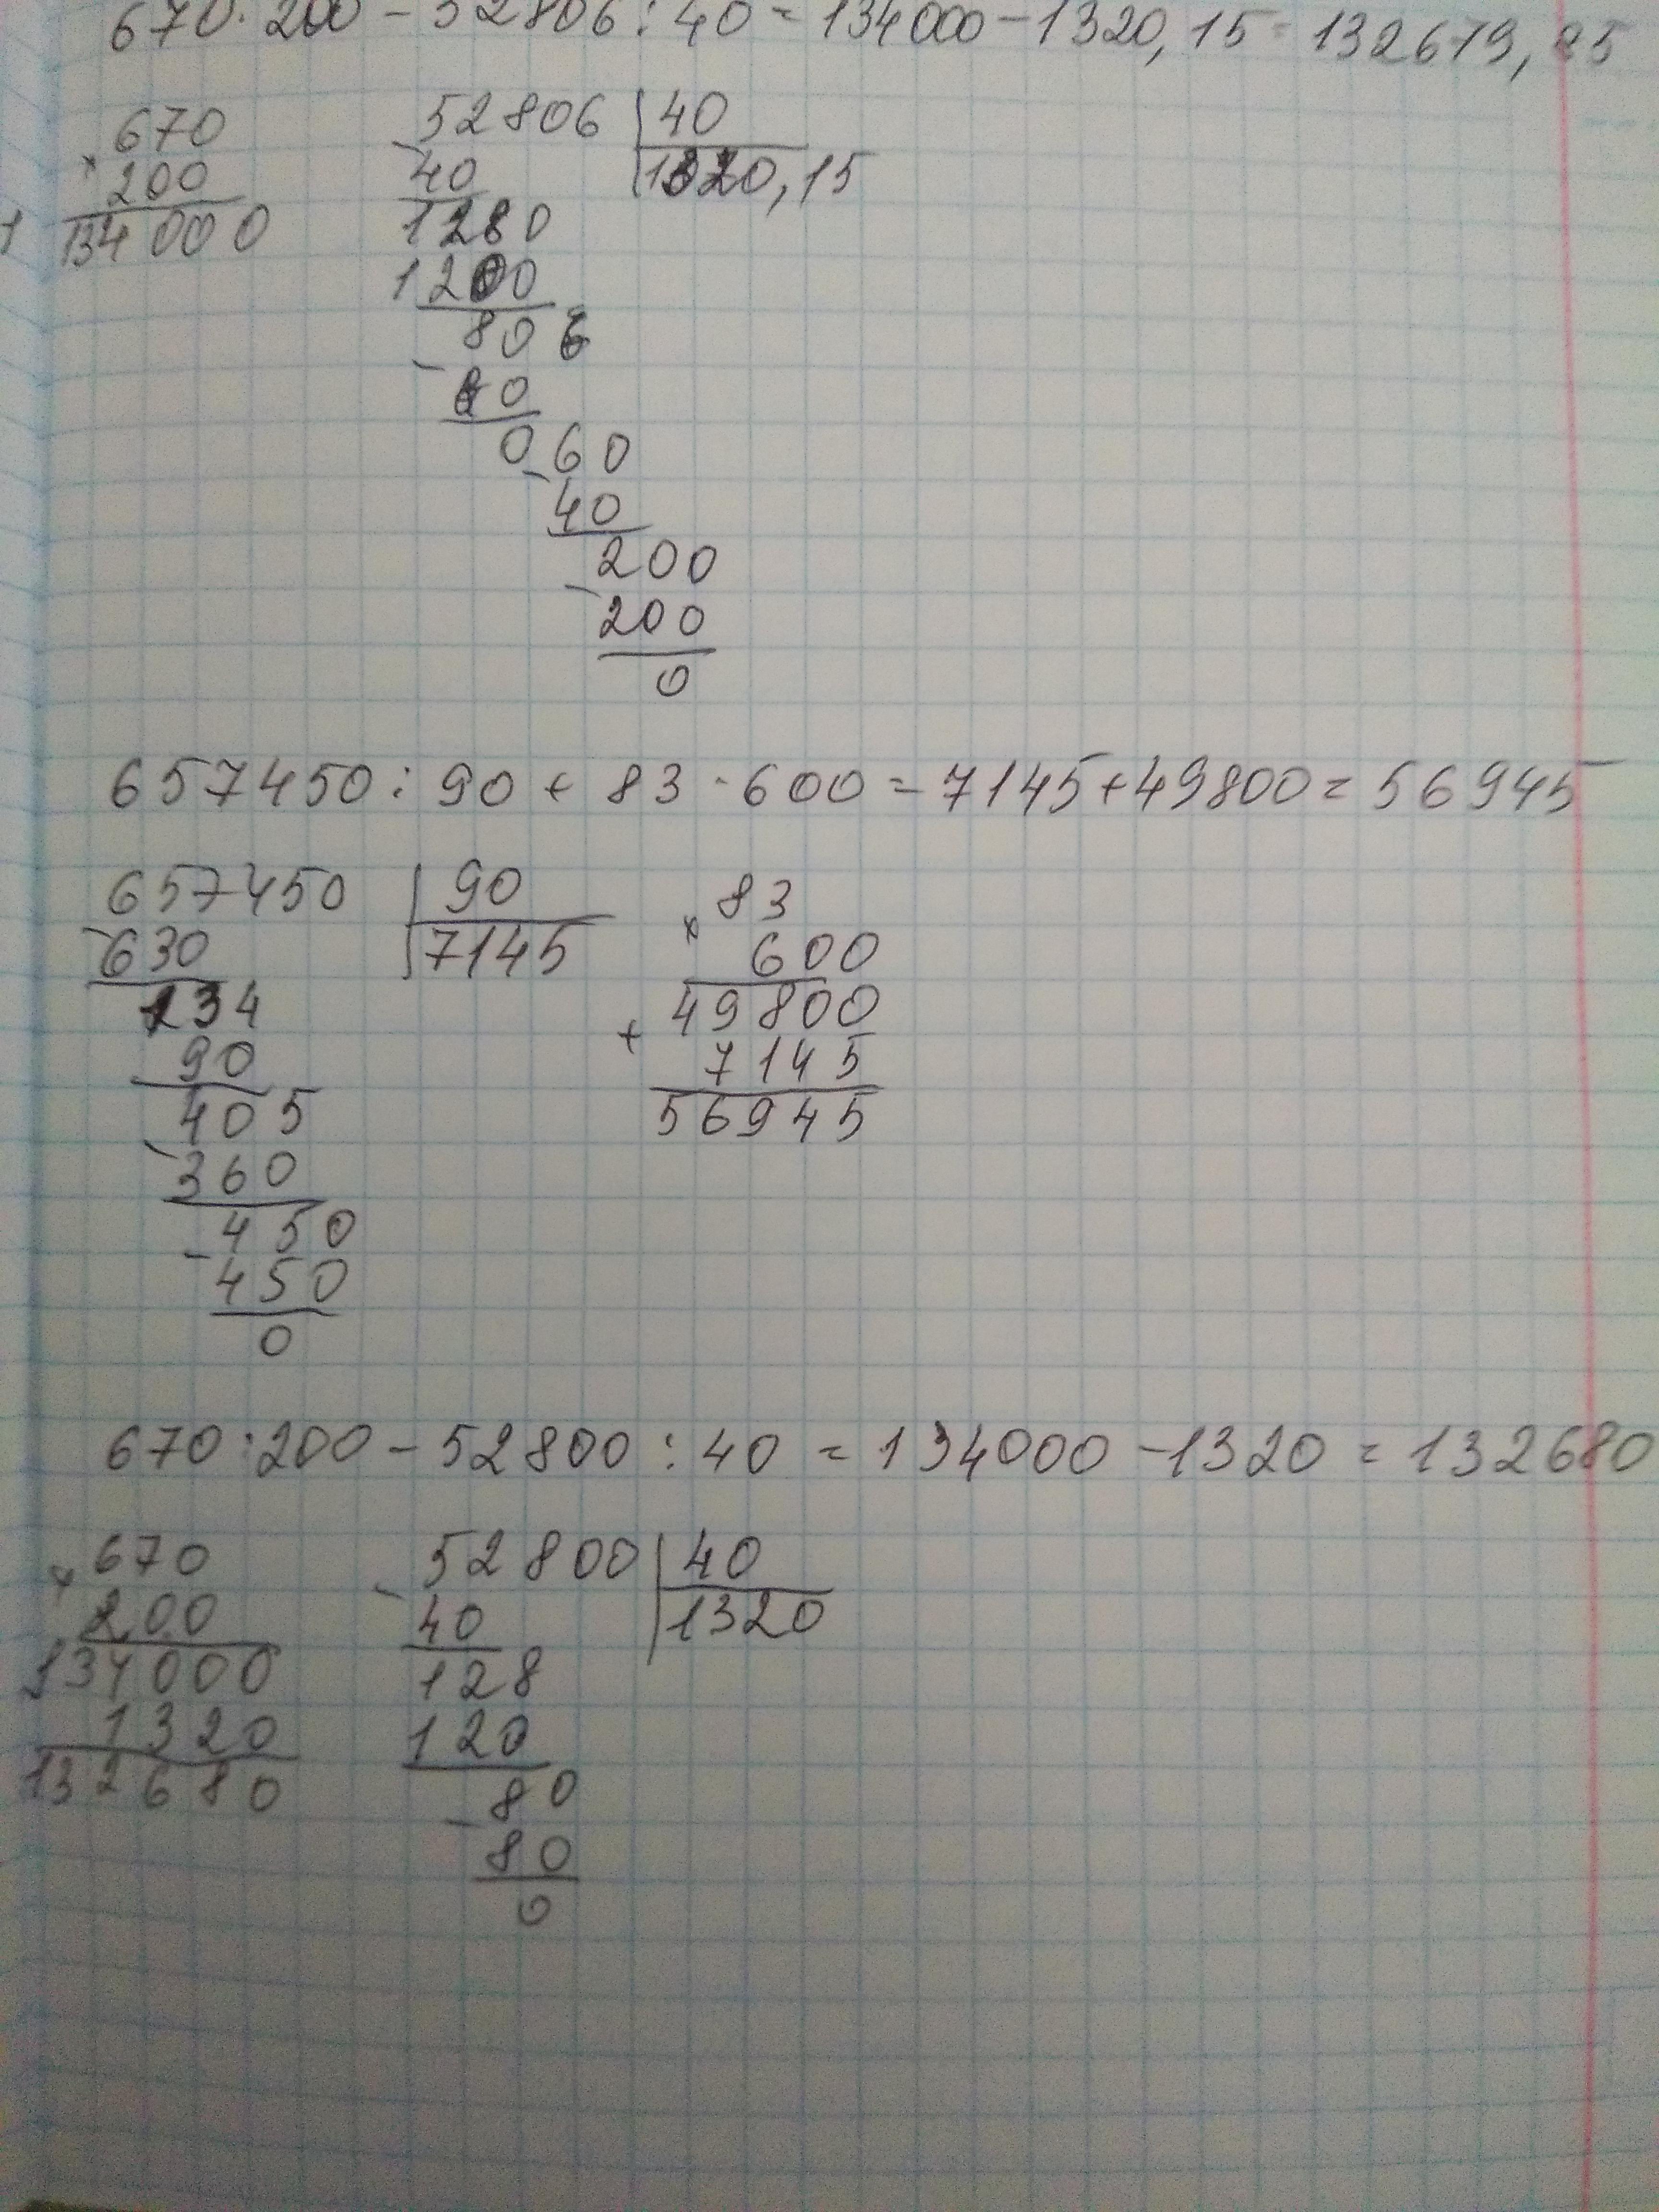 670 · 200 - 52806 : 40 = 134000 - 1320,15 = 132679,85
670 52806 40
× 200 40 1320,15
134000 1280
1200
806
- 80
060
- 40
200
- 200
0
657450 : 90 + 83 · 600 = 7145 + 49800 = 56945
657450 90 83
- 630 7145 × 600
134 49800
90 + 7145
405 56945
- 360
450
- 450
0
670 : 200 - 52800 : 40 = 134000 - 1320 = 132680
× 670 - 52800 40
200 40 1320
134000 128
1320 120
132680 80
- 80
0